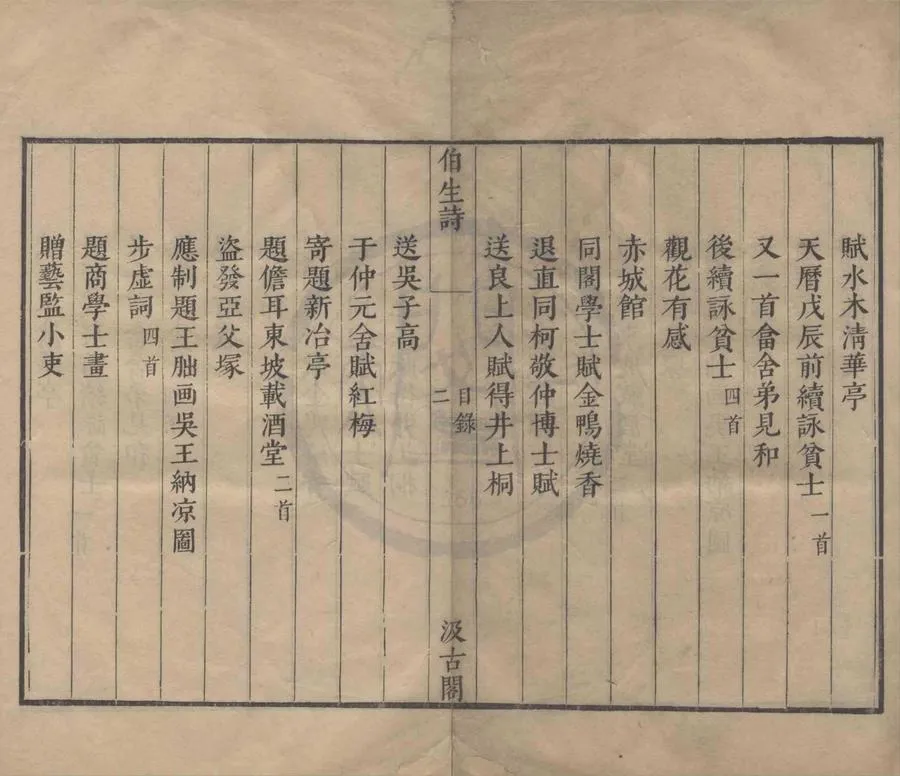 賦水木淸華亭
天曆戊辰前續詠貧士一首
又一首畣舍弟見和
後續詠貧士四首
觀花有感
赤城館
同閣學士賦金鴨燒香
退直同柯敬仲博士賦
送良上人賦得井上桐
伯生詩
目錄
二
汲古閣
送吳子高
于仲元舍賦紅梅
寄題新冶亭
題儋耳東坡載酒堂二首
盜發亞父塚
應制題王朏画吳王納凉圖
步虛詞四首
題商學士畫
贈藝監小吏